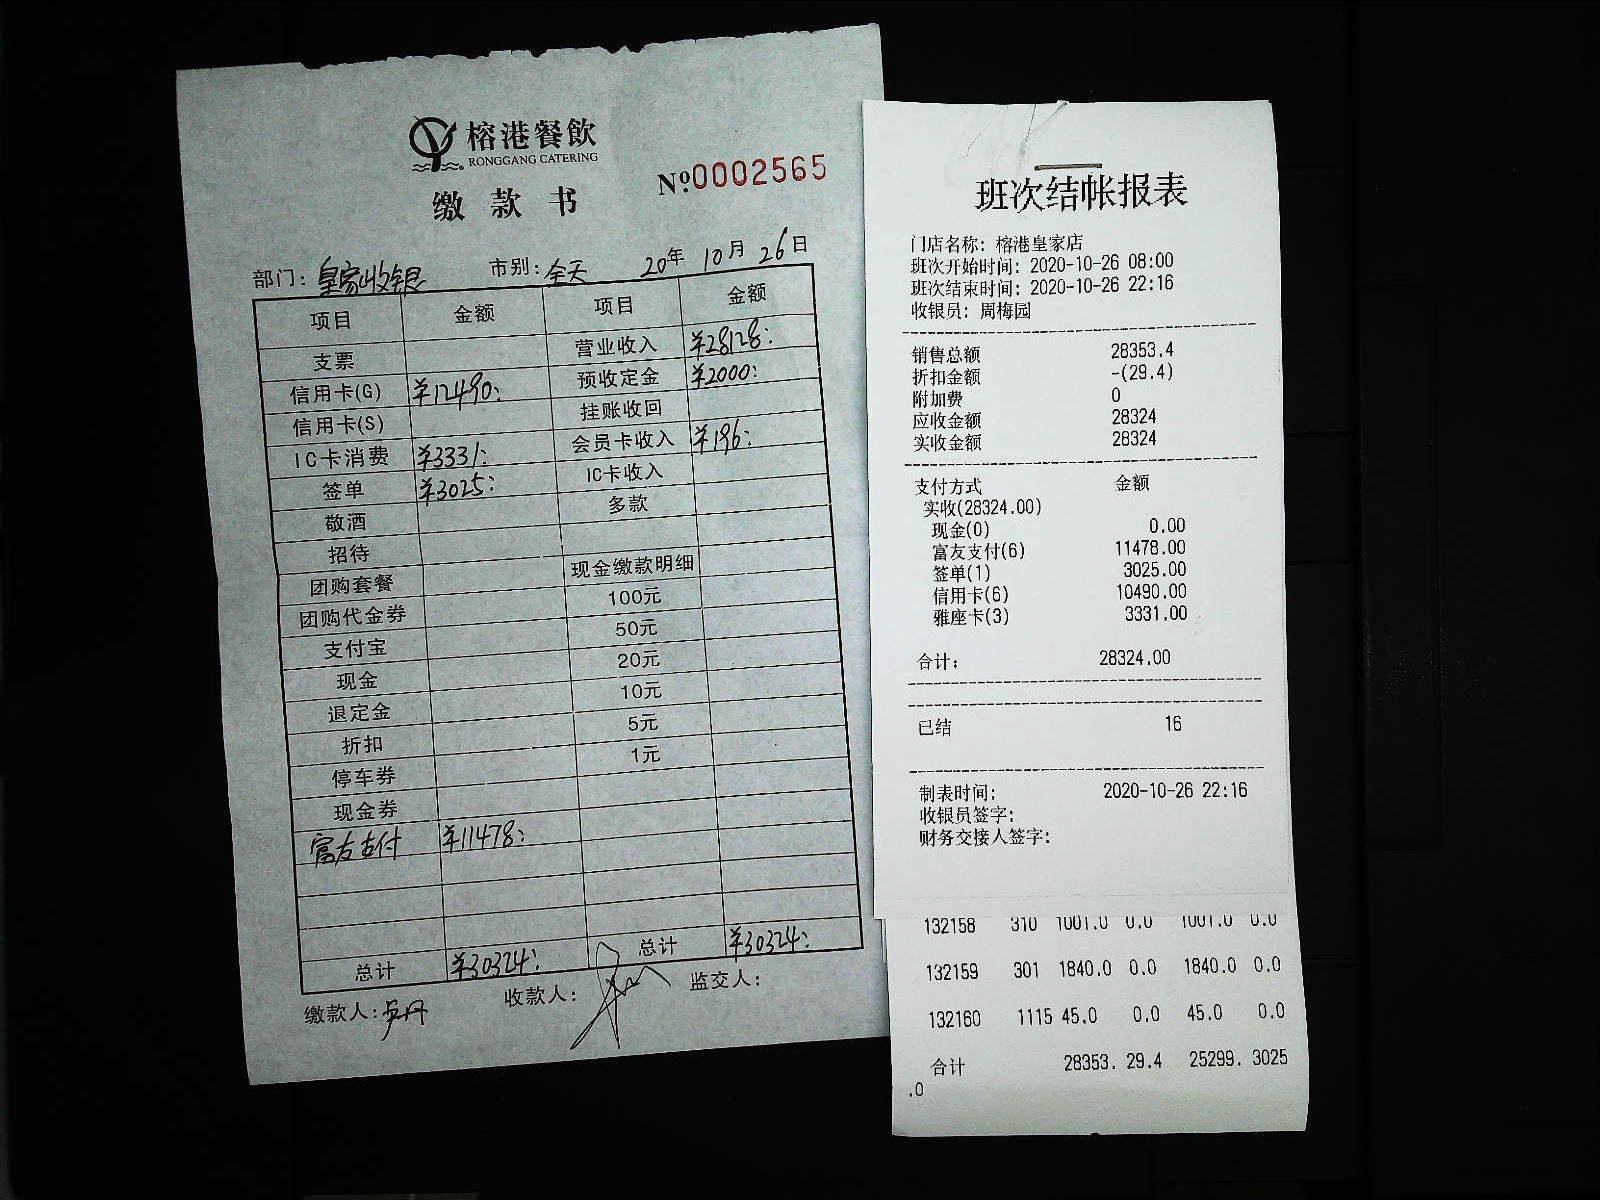 榕港餐飲
RONGGANG CATERING
缴款书 №0002565
部门: 皇家收银 市别: 全天 20年 10月 26日
项目 金额 项目 金额
支票 营业收入 ¥28128:
信用卡(G) ¥12490: 预收定金 ¥2000:
信用卡(S) 挂账收回
IC卡消费 ¥3331: 会员卡收入 ¥196:
签单 ¥3025: IC卡收入
敬酒 多款
招待
团购套餐 现金缴款明细
团购代金券 100元
支付宝 50元
现金 20元
退定金 10元
折扣 5元
停车券 1元
现金券
富友支付 ¥11478:
总计 ¥30324: 总计 ¥30324:
缴款人: 收款人: 监交人:
班次结帐报表
门店名称: 榕港皇家店
班次开始时间: 2020-10-26 08:00
班次结束时间: 2020-10-26 22:16
收银员: 周梅园
销售总额 28353.4
折扣金额 -(29.4)
附加费 0
应收金额 28324
实收金额 28324
支付方式 金额
实收(28324.00)
现金(0) 0.00
富友支付(6) 11478.00
签单(1) 3025.00
信用卡(6) 10490.00
雅座卡(3) 3331.00
合计: 28324.00
已结 16
制表时间: 2020-10-26 22:16
收银员签字:
财务交接人签字:
132158 310 1001.0 0.0 1001.0 0.0
132159 301 1840.0 0.0 1840.0 0.0
132160 1115 45.0 0.0 45.0 0.0
合计 28353. 29.4 25299. 3025
.0